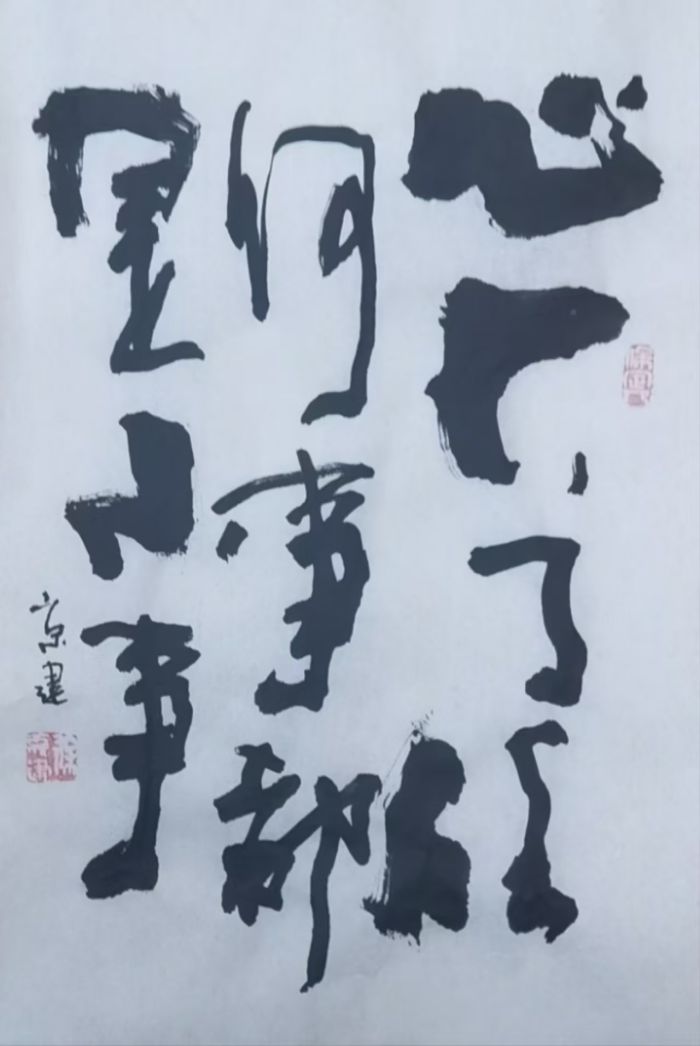 心大了
何事都
是小事
京建